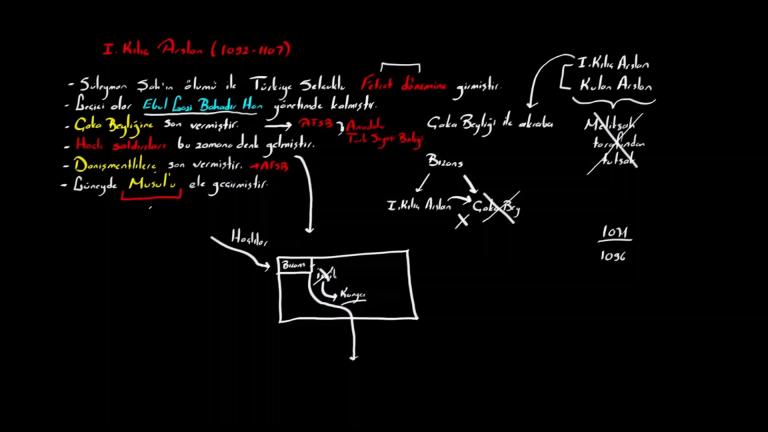 I. Kılıç Arslan (1092-1107)
- Süleyman Şah'ın ölümü ile Türkiye Selçuklu Fetret dönemine girmiştir.
- Geçici olar Ebul Gazi Bahadır Han yönetimde kalmıştır.
- Çaka Beyliğine son vermiştir. → ATSB
Anadolu
Türk Siyasi Birliği
- Haçlı saldırıları bu zamana denk gelmiştir.
- Danışmentlilere son vermiştir. → ATSB
- Güneyde Musul'u ele geçirmiştir.
I. Kılıç Arslan
Kulan Arslan
Melikşah
tarafından
tutsak
Çaka Beyliği ile akraba
Bizans
I. Kılıç Arslan
Çaka Bey
1071
1096
Haçlılar
Bizans
İznik
Konya